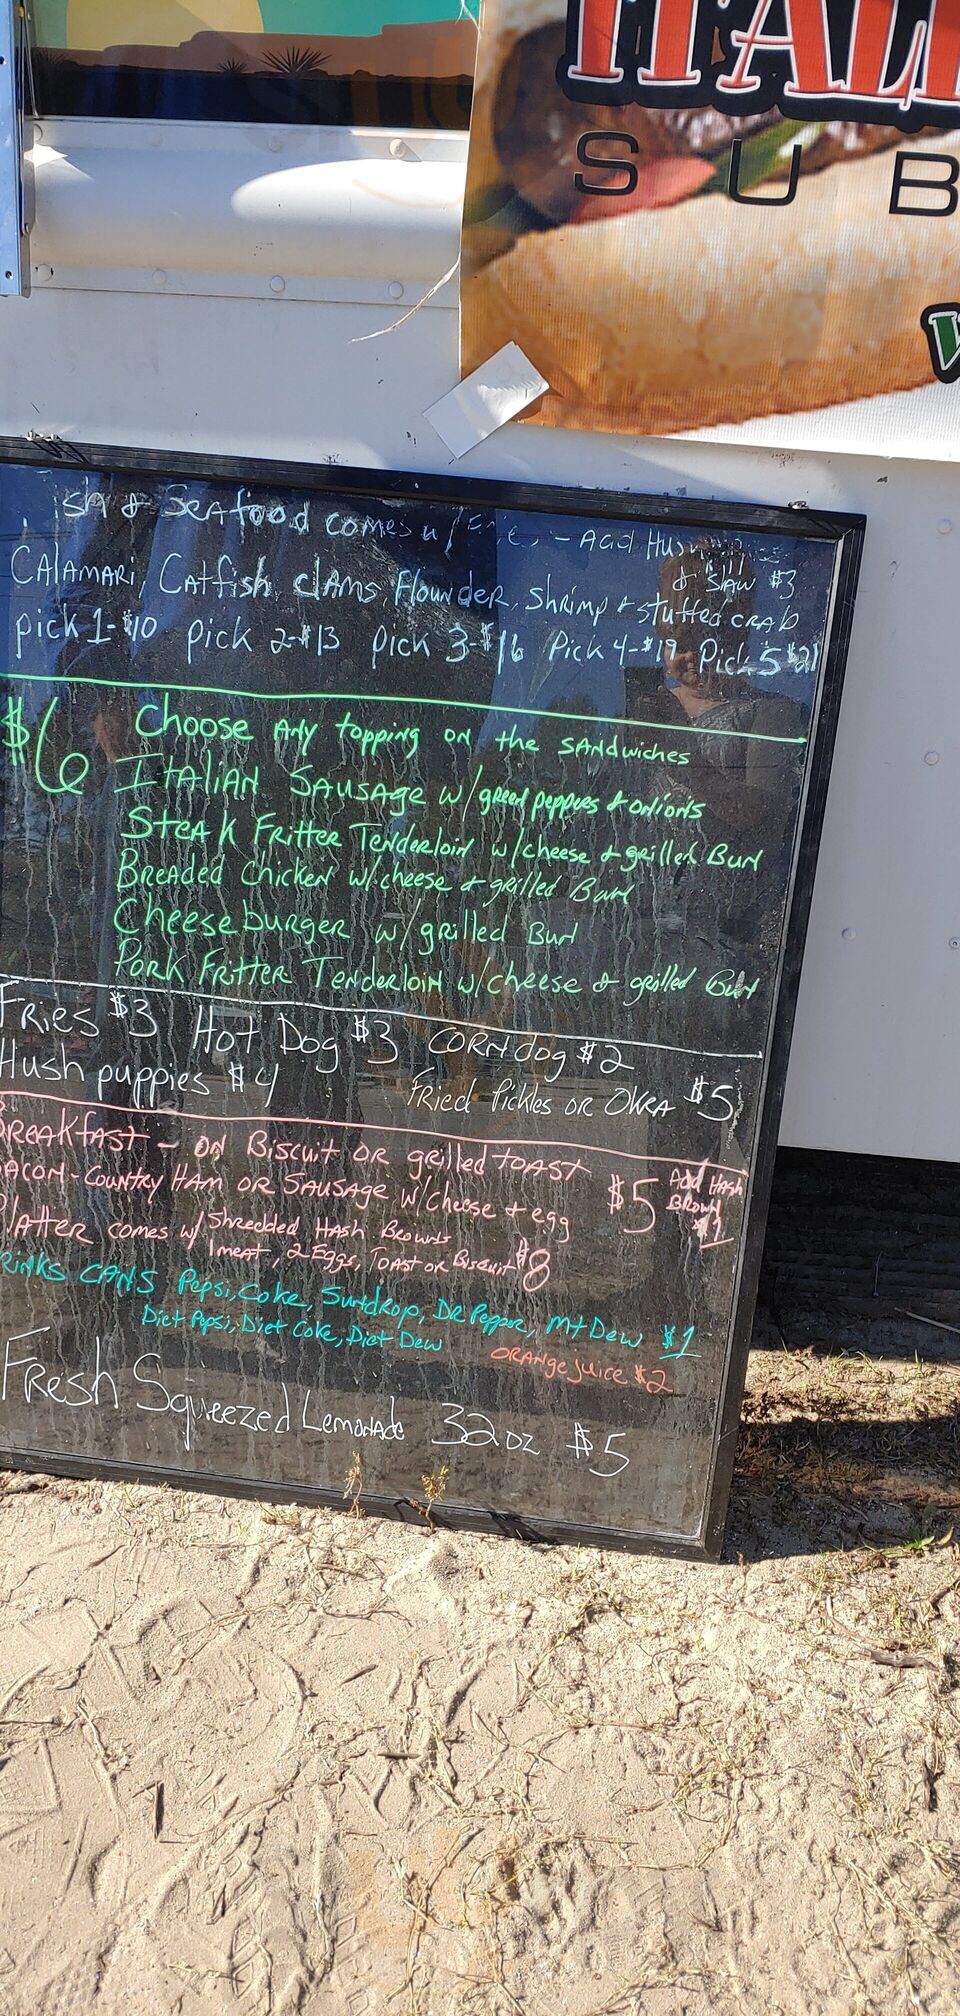 ITAL
SUB
ish & Seafood comes w/ Fries - Add Hush
& slaw $3
Calamari, Catfish, clams, Flounder, shrimp & stuffed crab
pick 1-$10 pick 2-$13 pick 3-$16 Pick 4-$19 Pick 5 $21
$6 Choose Any topping on the sandwiches
Italian Sausage w/ green peppers & onions
Steak Fritter Tenderloin w/cheese & grilled Bun
Breaded Chicken w/cheese & grilled Bun
Cheeseburger w/ grilled Bun
Pork Fritter Tenderloin w/cheese & grilled Bun
Fries $3 Hot Dog $3 Corndog $2
Hush puppies $4 Fried Pickles or Okra $5
Breakfast - on Biscuit or grilled toast
Bacon-Country Ham or Sausage w/cheese & egg $5 Add Hash Brown $1
Platter comes w/ Shredded Hash Browns
1 meat, 2 Eggs, Toast or Biscuit $8
rinks cans Pepsi, Coke, Sundrop, Dr Pepper, Mt Dew $1
Diet Pepsi, Diet Coke, Diet Dew Orange juice $2
Fresh Squeezed Lemonade 32 oz $5